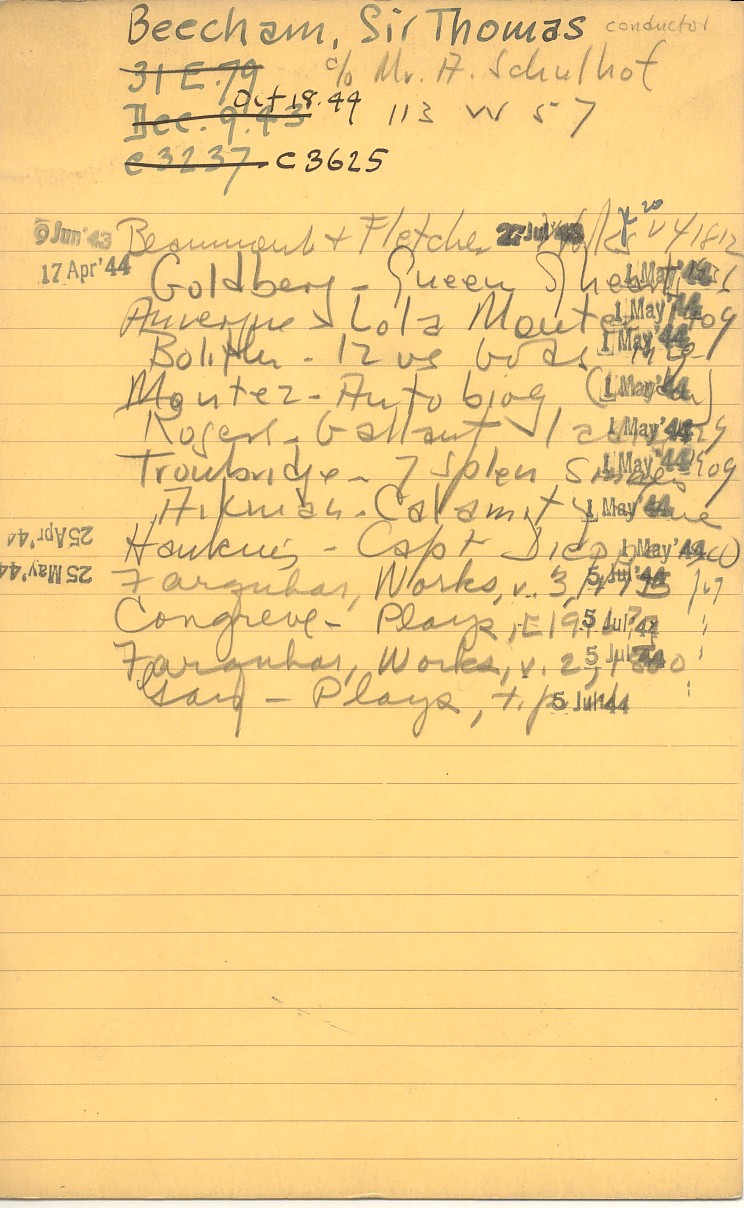 Beecham, Sir Thomas conductor
31 E. 79 c/o Mr. A. Schulhof
Dec. 9. 43 Oct 18. 44 113 W 57
c3237 c3625
9 Jun '43 Beaumont + Fletcher 27 Jul '43 v 4 1812
17 Apr '44 Goldberg - Queen 1 May '44
Auvergne Lola Montez 1 May '44
Bolitho - 12 vs Gods 1 May '44
Montez - Autobiog 1 May '44
Rogers - Gallant 1 May '44
Troubridge - 7 Splen 1 May '44
Aikman - Calamity 1 May '44
25 Apr '44 Hawkins - Capt 1 May '44
25 May '44 Farquhar, Works, v. 3, 5 Jul '44
Congreve - Plays, 5 Jul '44
Farquhar, Works, v. 2, 5 Jul '44
Gay - Plays, 5 Jul '44